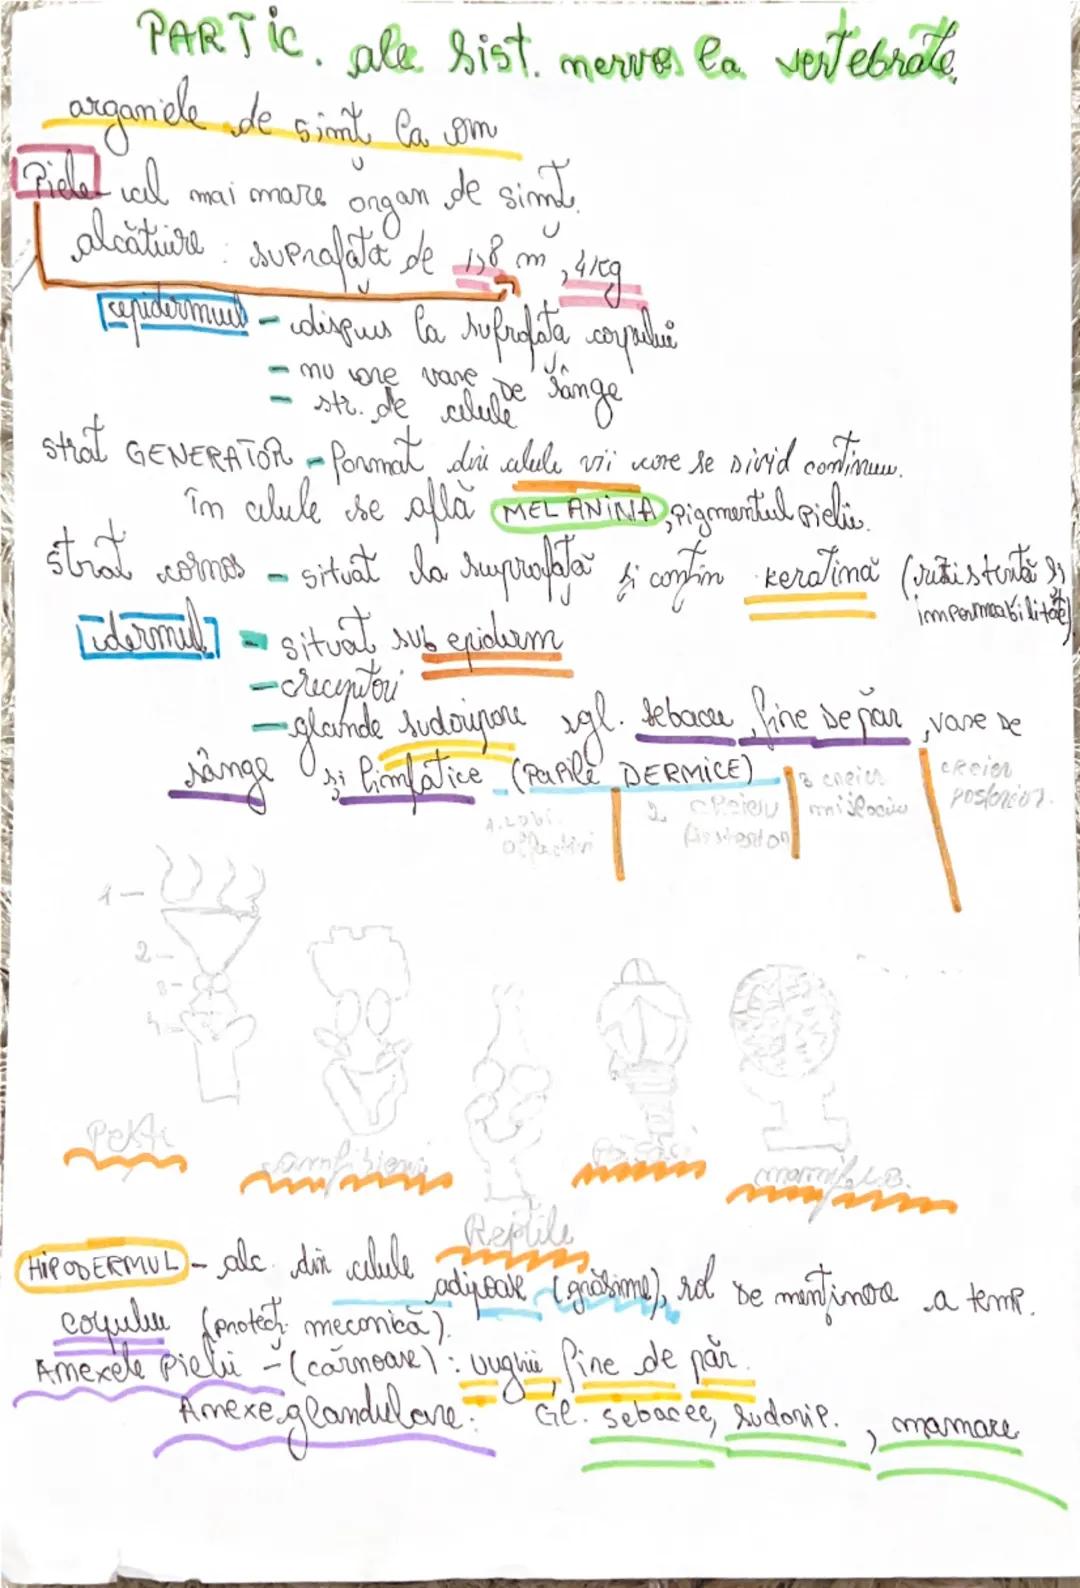 PARTIC. ale sist. nervos la vertebrate
organele de simț la om
Piele - cel mai mare organ de simț.
alcătuire : suprafața de 1,8 m, 4 kg
epidermul - dispus la suprafața corpului
- nu are vase de sânge
- str. de celule
strat GENERATOR - format din celule vii care se divid continuu.
în celule se află MELANINA, pigmentul pielii.
Strat cornos - situat la suprafață și conțin keratină (rezistență și
impermeabilitate)
dermul - situat sub epiderm
- receptori
- glande sudoripare, gl. sebacee, fire de păr, vase de
sânge și limfatice (PAPILE DERMICE)
1. Lobi olfactivi
2 creieru
3 creier mijlociu
creier posterior.
1 -
2 -
3 -
4 -
Pești
amfibieni
Reptile
Păsări
mamif.
HIPODERMUL - alc. din celule adipoase (grăsime), rol de menținere a temp.
corpului (protecț. mecanică).
Anexele Pielii - (cărnoase) : unghii, fire de păr.
Anexe glandulare : Gl. sebacee, sudorip. , mamare